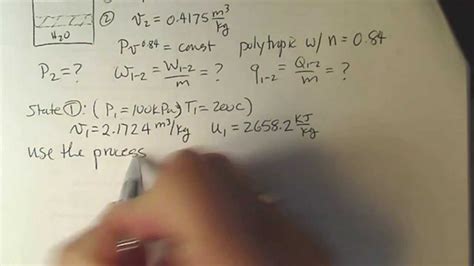 ② v₂ = 0.4175 m³/kg
H₂O
Pv^0.84 = const polytropic w/ n = 0.84
P₂ = ? w₁₋₂ = W₁₋₂/m = ? q₁₋₂ = Q₁₋₂/m = ?
State ①: (P₁ = 100kPa, T₁ = 200C)
v₁ = 2.1724 m³/kg u₁ = 2658.2 KJ/kg
use the process